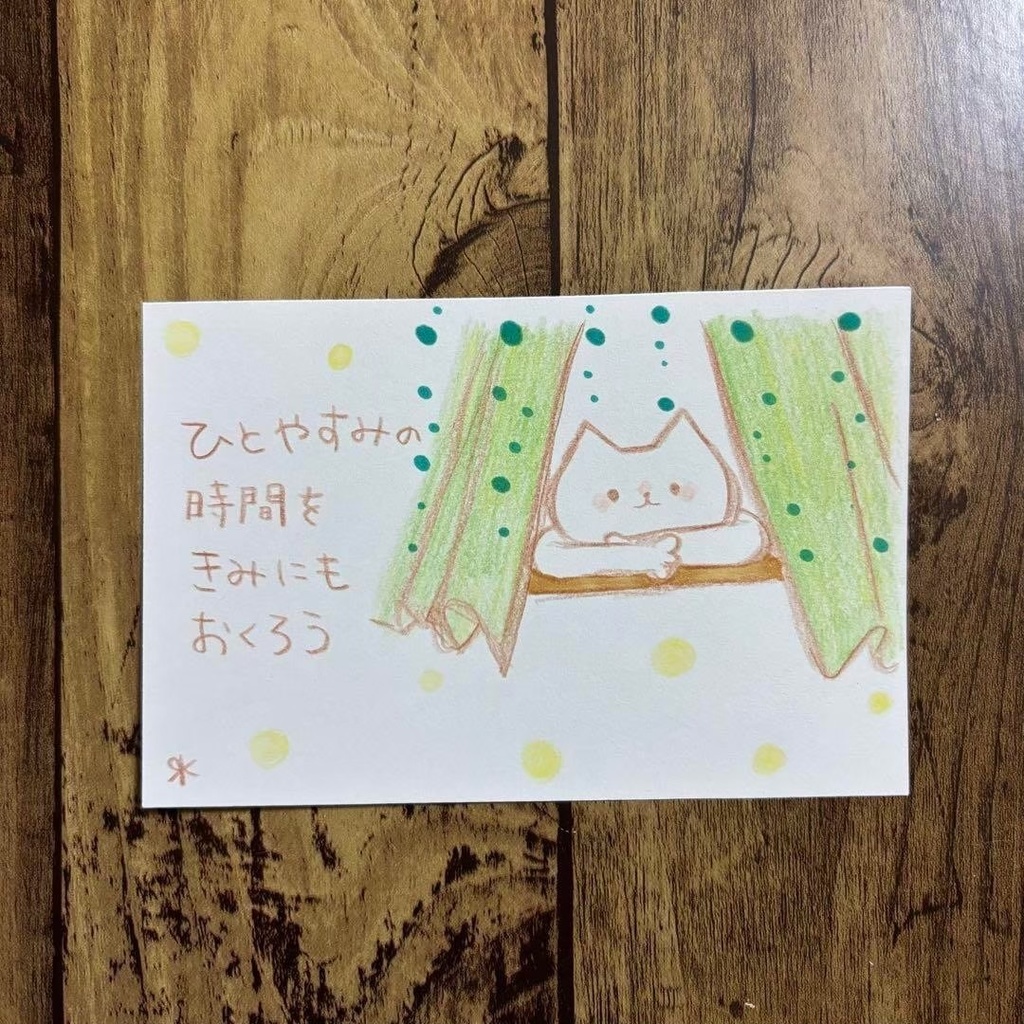 ひとやすみの
時間を
きみにも
おくろう